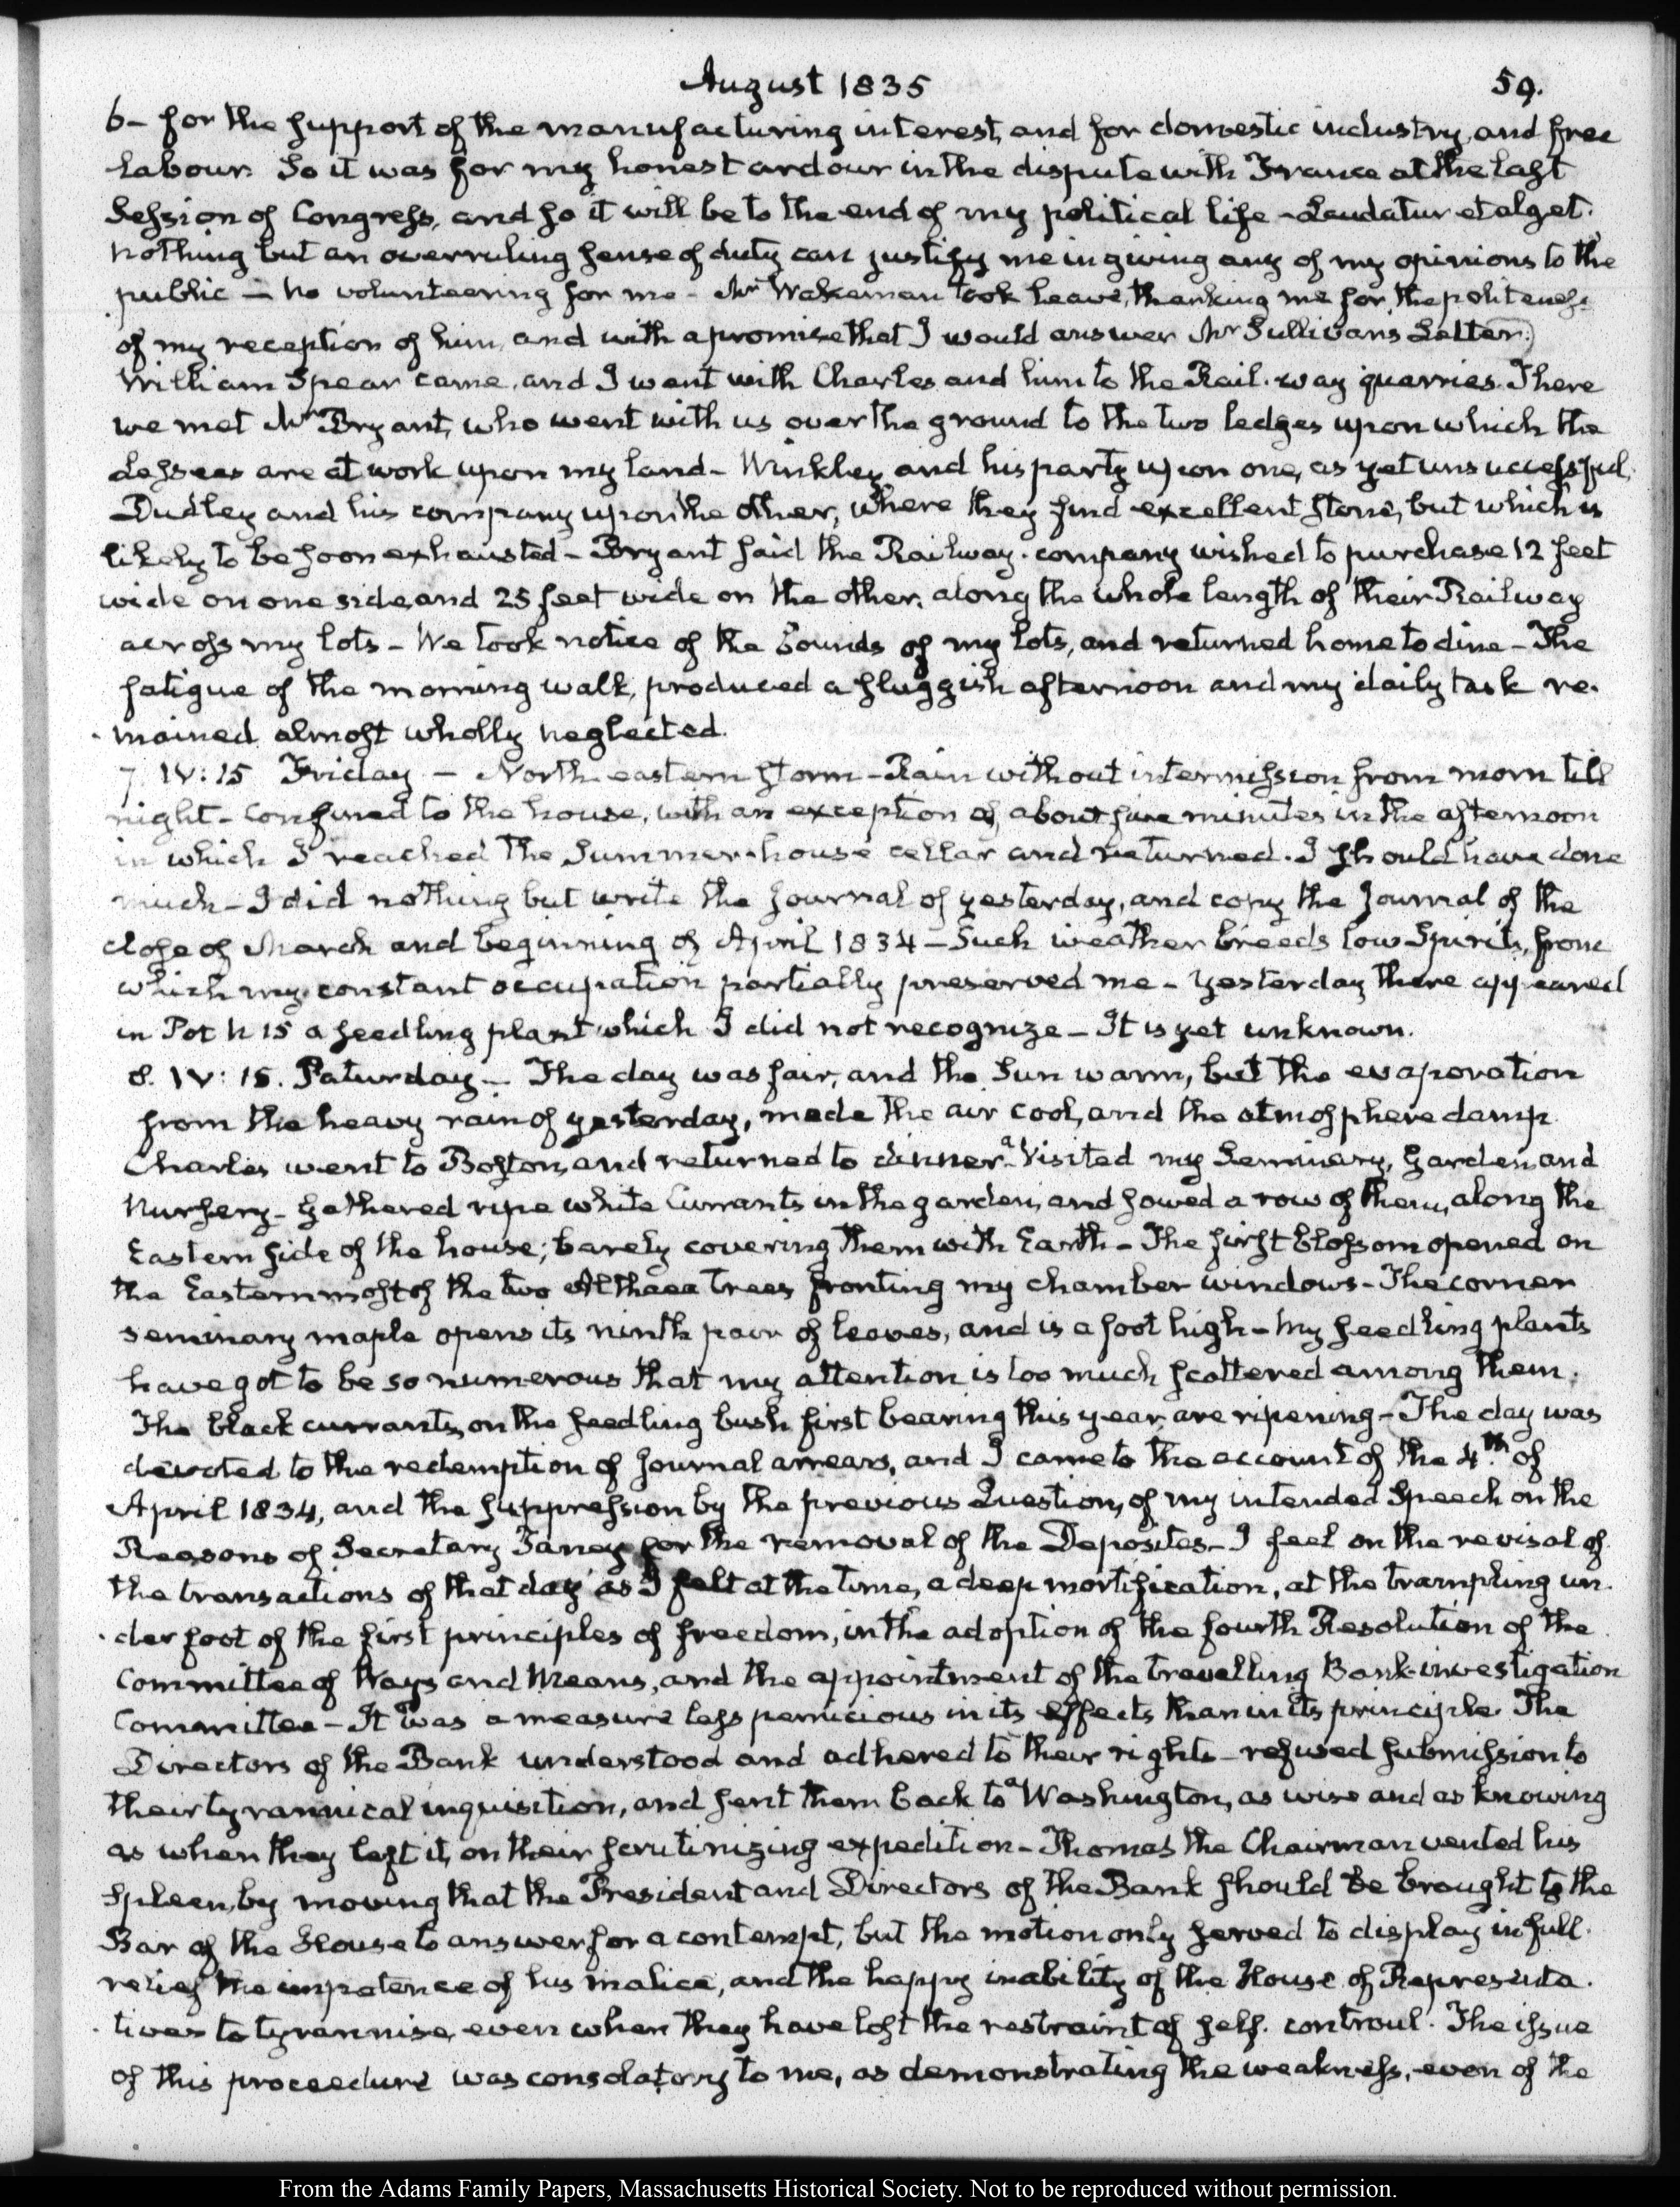 August 1835
59.
6– for the support of the manufacturing interest, and for domestic industry, and free
labour. So it was for my honest ardour in the dispute with France at the last
Session of Congress, and so it will be to the end of my political life – Laudatur et alget.
nothing but an overruling sense of duty can justify me in giving any of my opinions to the
public – no volunteering for me – Mr Wakeman took leave, thanking me for the politeness
of my reception of him, and with a promise that I would answer Mr Sullivan's Letter.
William Spear came, and I went with Charles and him to the Rail-way quarries. There
we met Mr Bryant, who went with us over the ground to the two ledges upon which the
Lessees are at work upon my land – Winkley and his party upon one, as yet unsuccessful,
Dudley and his company upon the other, where they find excellent stone, but which is
likely to be soon exhausted – Bryant said the Railway-company wished to purchase 12 feet
wide on one side, and 25 feet wide on the other, along the whole length of their Railway
across my lots – We took notice of the bounds of my lots, and returned home to dine – The
fatigue of the morning walk, produced a sluggish afternoon and my daily task re-
mained almost wholly neglected.
7. IV:15 Friday – North-eastern storm – Rain without intermission from morn till
night – Confined to the house, with an exception of about five minutes in the afternoon
in which I reached the Summer-house cellar and returned. I should have done
much – I did nothing but write the journal of yesterday, and copy the Journal of the
close of March and beginning of April 1834 – Such weather breeds low Spirits, from
which my constant occupation partially preserved me – Yesterday there appeared
in Pot N 15 a seedling plant which I did not recognize – It is yet unknown.
8. IV:15. Saturday – The day was fair, and the Sun warm, but the evaporation
from the heavy rain of yesterday, made the air cool, and the atmosphere damp
Charles went to Boston, and returned to dinner – Visited my Seminary, Garden, and
Nursery – Gathered ripe white Currants in the garden, and sowed a row of them, along the
Eastern side of the house; barely covering them with Earth – The first blossom opened on
the Easternmost of the two Althaea trees fronting my chamber windows – The corner
seminary maple opens its ninth pair of leaves, and is a foot high – My seedling plants
have got to be so numerous that my attention is too much scattered among them.
The black currants, on the seedling bush first bearing this year, are ripening – The day was
devoted to the redemption of journal arrears, and I came to the account of the 4th of
April 1834, and the suppression by the previous Question, of my intended Speech on the
Reasons of Secretary Taney for the removal of the Deposites – I feel on the revisal of
the transactions of that day as I felt at the time, a deep mortification, at the trampling un-
der foot of the first principles of freedom, in the adoption of the fourth Resolution of the
Committee of Ways and Means, and the appointment of the travelling Bank-investigation
Committee – It was a measure less pernicious in its effects than in its principle. The
Directors of the Bank understood and adhered to their rights – refused submission to
their tyrannical inquisition, and sent them back to Washington, as wise and as knowing
as when they left it, on their scrutinizing expedition – Thomas the Chairman vented his
spleen, by moving that the President and Directors of the Bank should be brought to the
Bar of the House to answer for a contempt, but the motion only served to display in full
relief the impotence of his malice, and the happy inability of the House of Representa-
tives to tyrannise, even when they have lost the restraint of self-controul. The issue
of this proceedure was consolatory to me, as demonstrating the weakness, even of the
From the Adams Family Papers, Massachusetts Historical Society. Not to be reproduced without permission.